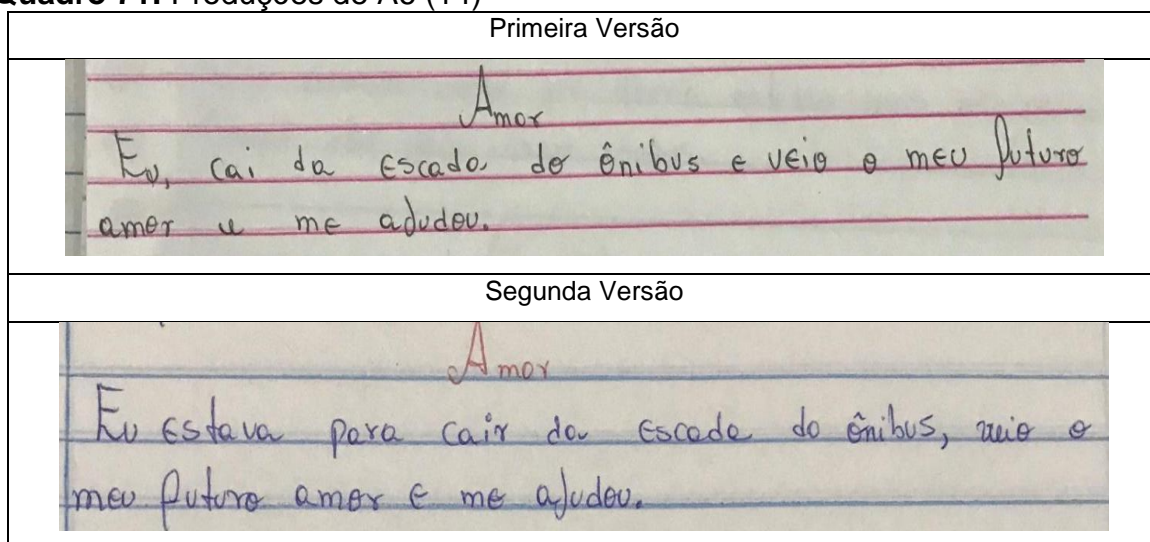 Quadro 71: Produções de A8 (T4)
Primeira Versão
Amor
Eu, cai da escada do ônibus e veio o meu futuro
amor e me adudou.
Segunda Versão
Amor
Eu estava para cair da escada do ônibus, veio o
meu futuro amor e me ajudou.